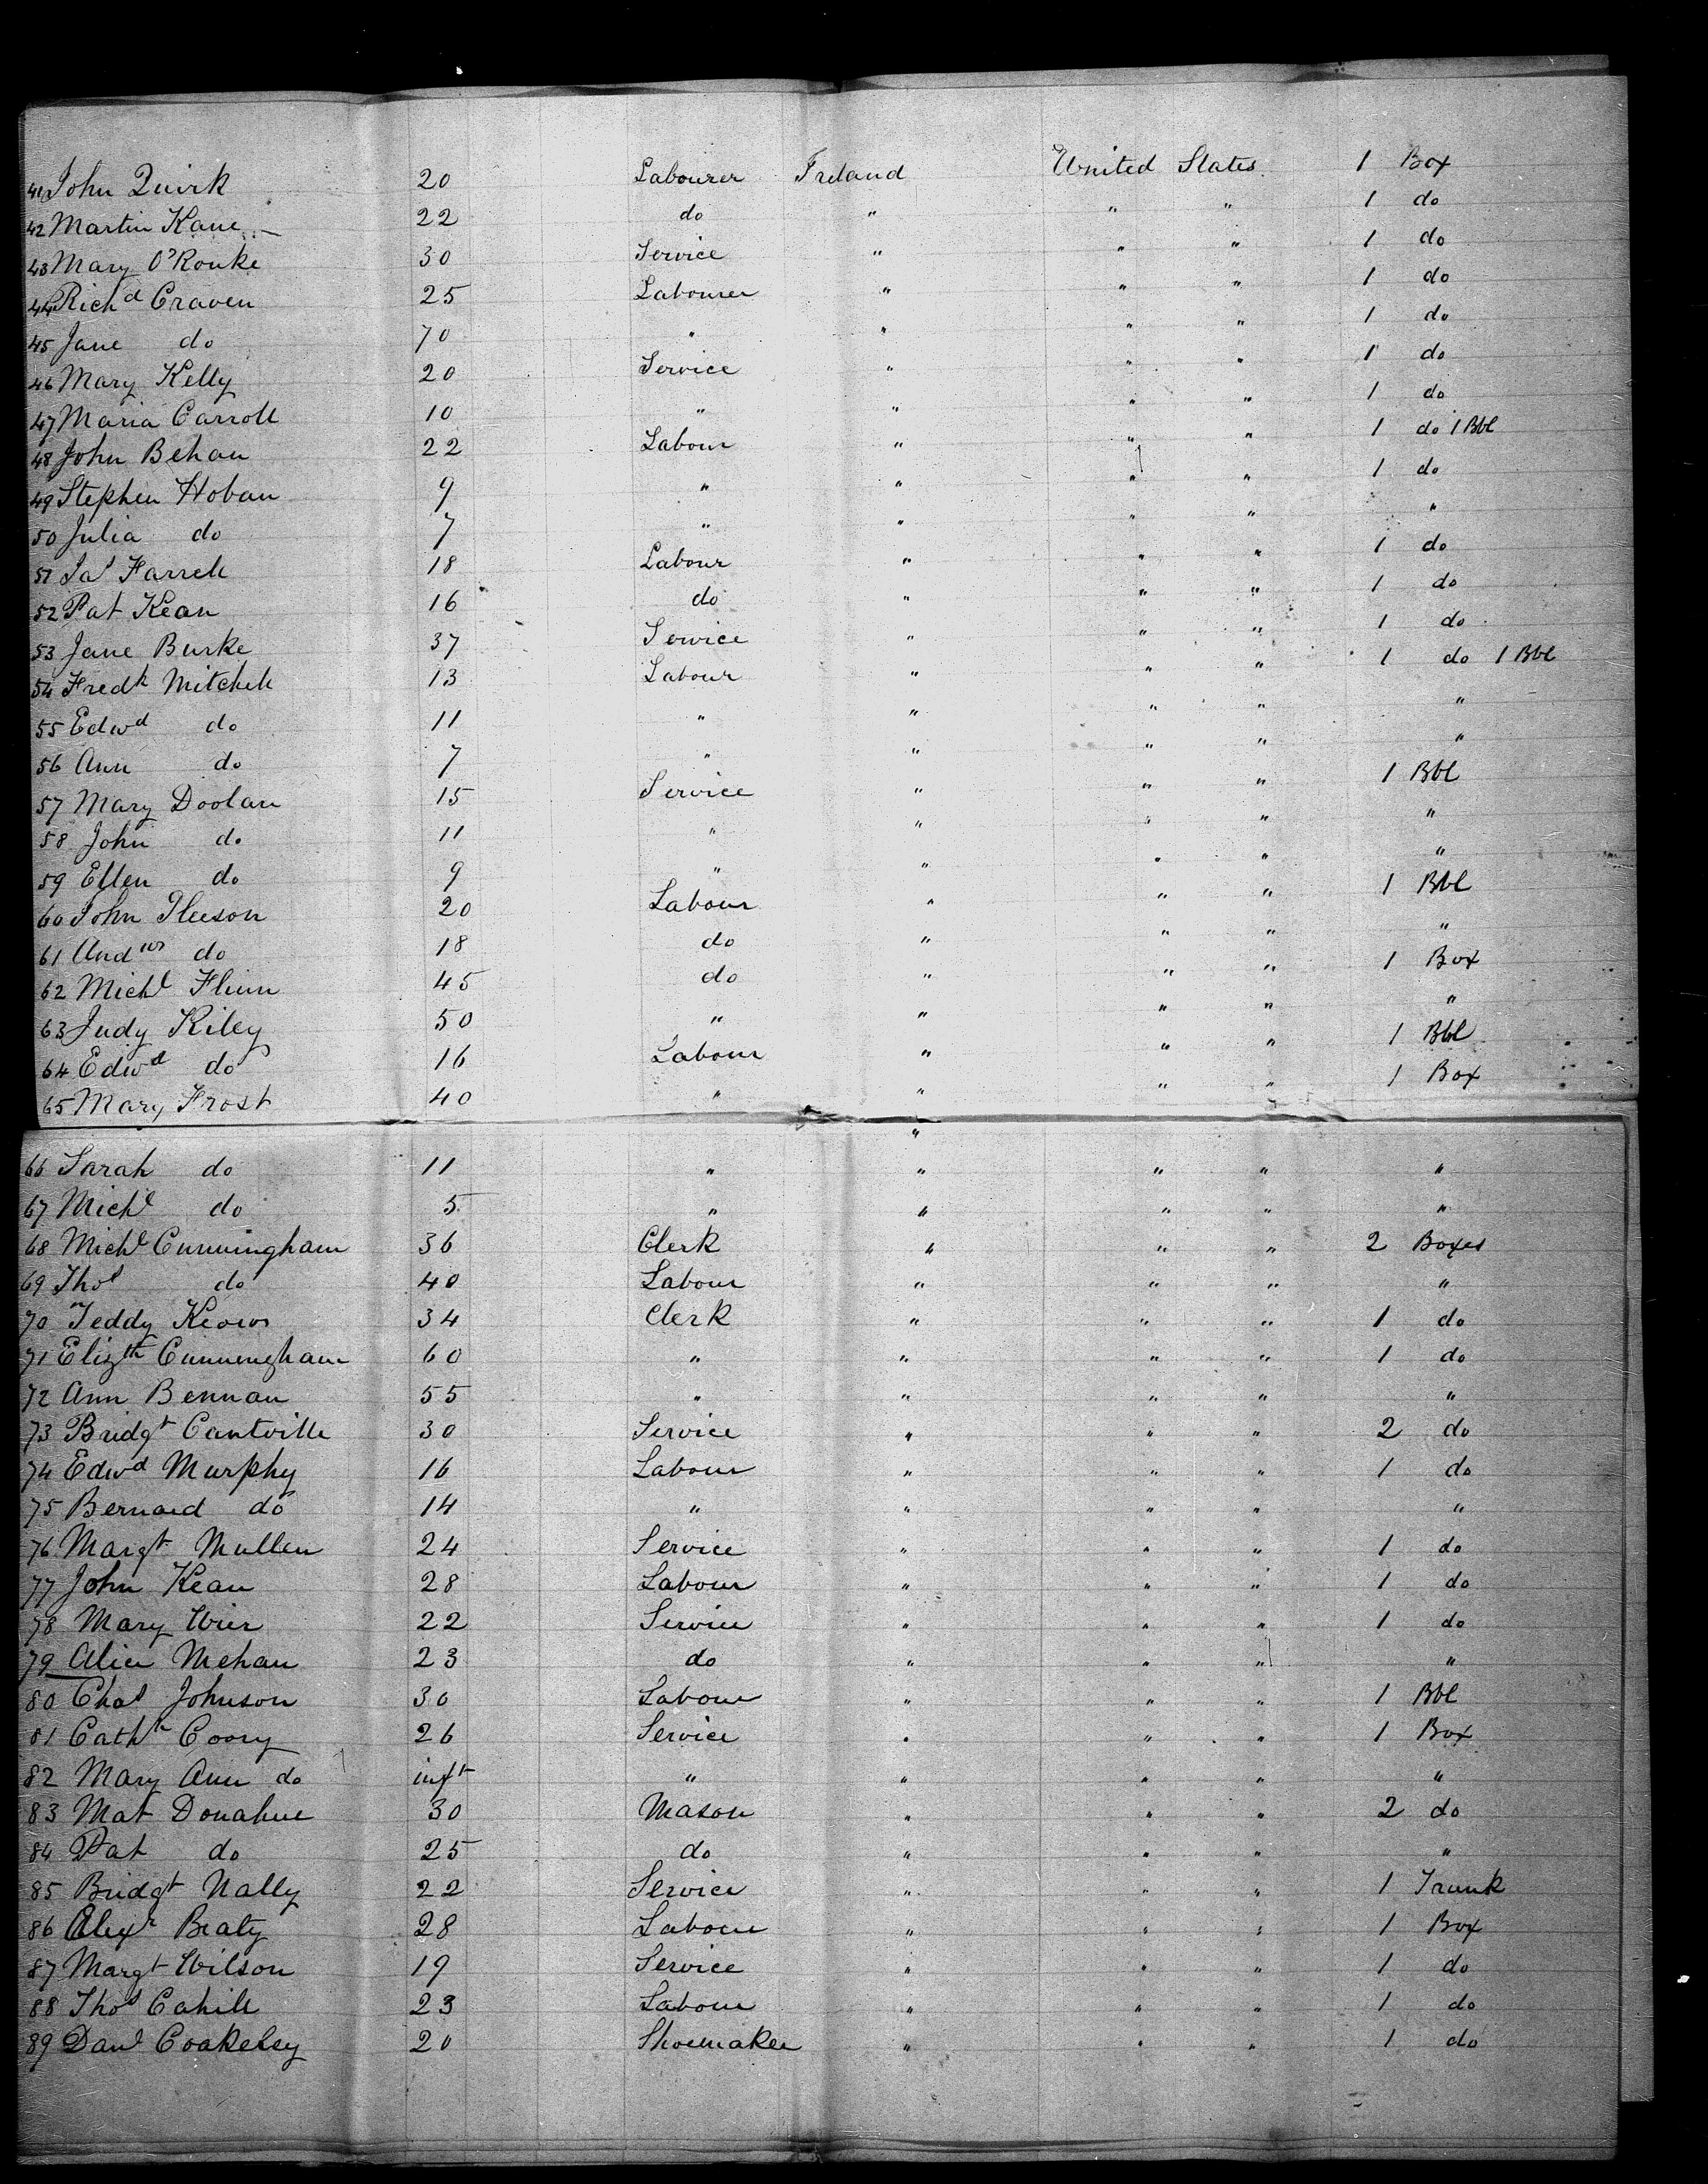 41 John Quirk 20 Labourer Ireland United States 1 Box
42 Martin Kane 22 do " " " 1 do
43 Mary O'Rouke 30 Service " " " 1 do
44 Richd Craven 25 Labourer " " " 1 do
45 Jane do 70 " " " " 1 do
46 Mary Kelly 20 Service " " " 1 do
47 Maria Carroll 10 " " " " 1 do
48 John Behan 22 Labour " " " 1 do 1 Bbl
49 Stephen Hoban 9 " " " " 1 do
50 Julia do 7 " " " " "
51 Jas Farrell 18 Labour " " " 1 do
52 Pat Kean 16 do " " " 1 do
53 Jane Burke 37 Service " " " 1 do
54 Fredk Mitchell 13 Labour " " " 1 do 1 Bbl
55 Edwd do 11 " " " " "
56 Ann do 7 " " " " "
57 Mary Doolan 15 Service " " " 1 Bbl
58 John do 11 " " " " "
59 Ellen do 9 " " " " "
60 John Gleeson 20 Labour " " " 1 Bbl
61 Andw do 18 do " " " "
62 Michl Flinn 45 do " " " 1 Box
63 Judy Riley 50 " " " " "
64 Edwd do 16 Labour " " " 1 Bbl
65 Mary Frost 40 " " " " 1 Box
"
66 Sarah do 11 " " " " "
67 Michl do 5 " " " " "
68 Michl Cunningham 36 Clerk " " " 2 Boxes
69 Thos do 40 Labour " " " "
70 Teddy 34 Clerk " " " 1 do
71 Elizth Cunningham 60 " " " " 1 do
72 Ann Bennan 55 " " " " "
73 Bridgt Cantville 30 Service " " " 2 do
74 Edwd Murphy 16 Labour " " " 1 do
75 Bernard do 14 " " " " "
76 Margt Mullen 24 Service " " " 1 do
77 John Kean 28 Labour " " " 1 do
78 Mary Wier 22 Service " " " 1 do
79 Alice Mehan 23 do " " " "
80 Chas Johnson 30 Labour " " " 1 Bbl
81 Cathn Coory 26 Service " " " 1 Box
82 Mary Ann do inft " " " " "
83 Mat Donahue 30 Mason " " " 2 do
84 Pat do 25 do " " " "
85 Bridgt Nally 22 Service " " " 1 Trunk
86 Alexr Beaty 28 Labour " " " 1 Box
87 Margt Wilson 19 Service " " " 1 do
88 Thos Cahill 23 Labour " " " 1 do
89 Danl Coakeley 20 Shoemaker " " " 1 do